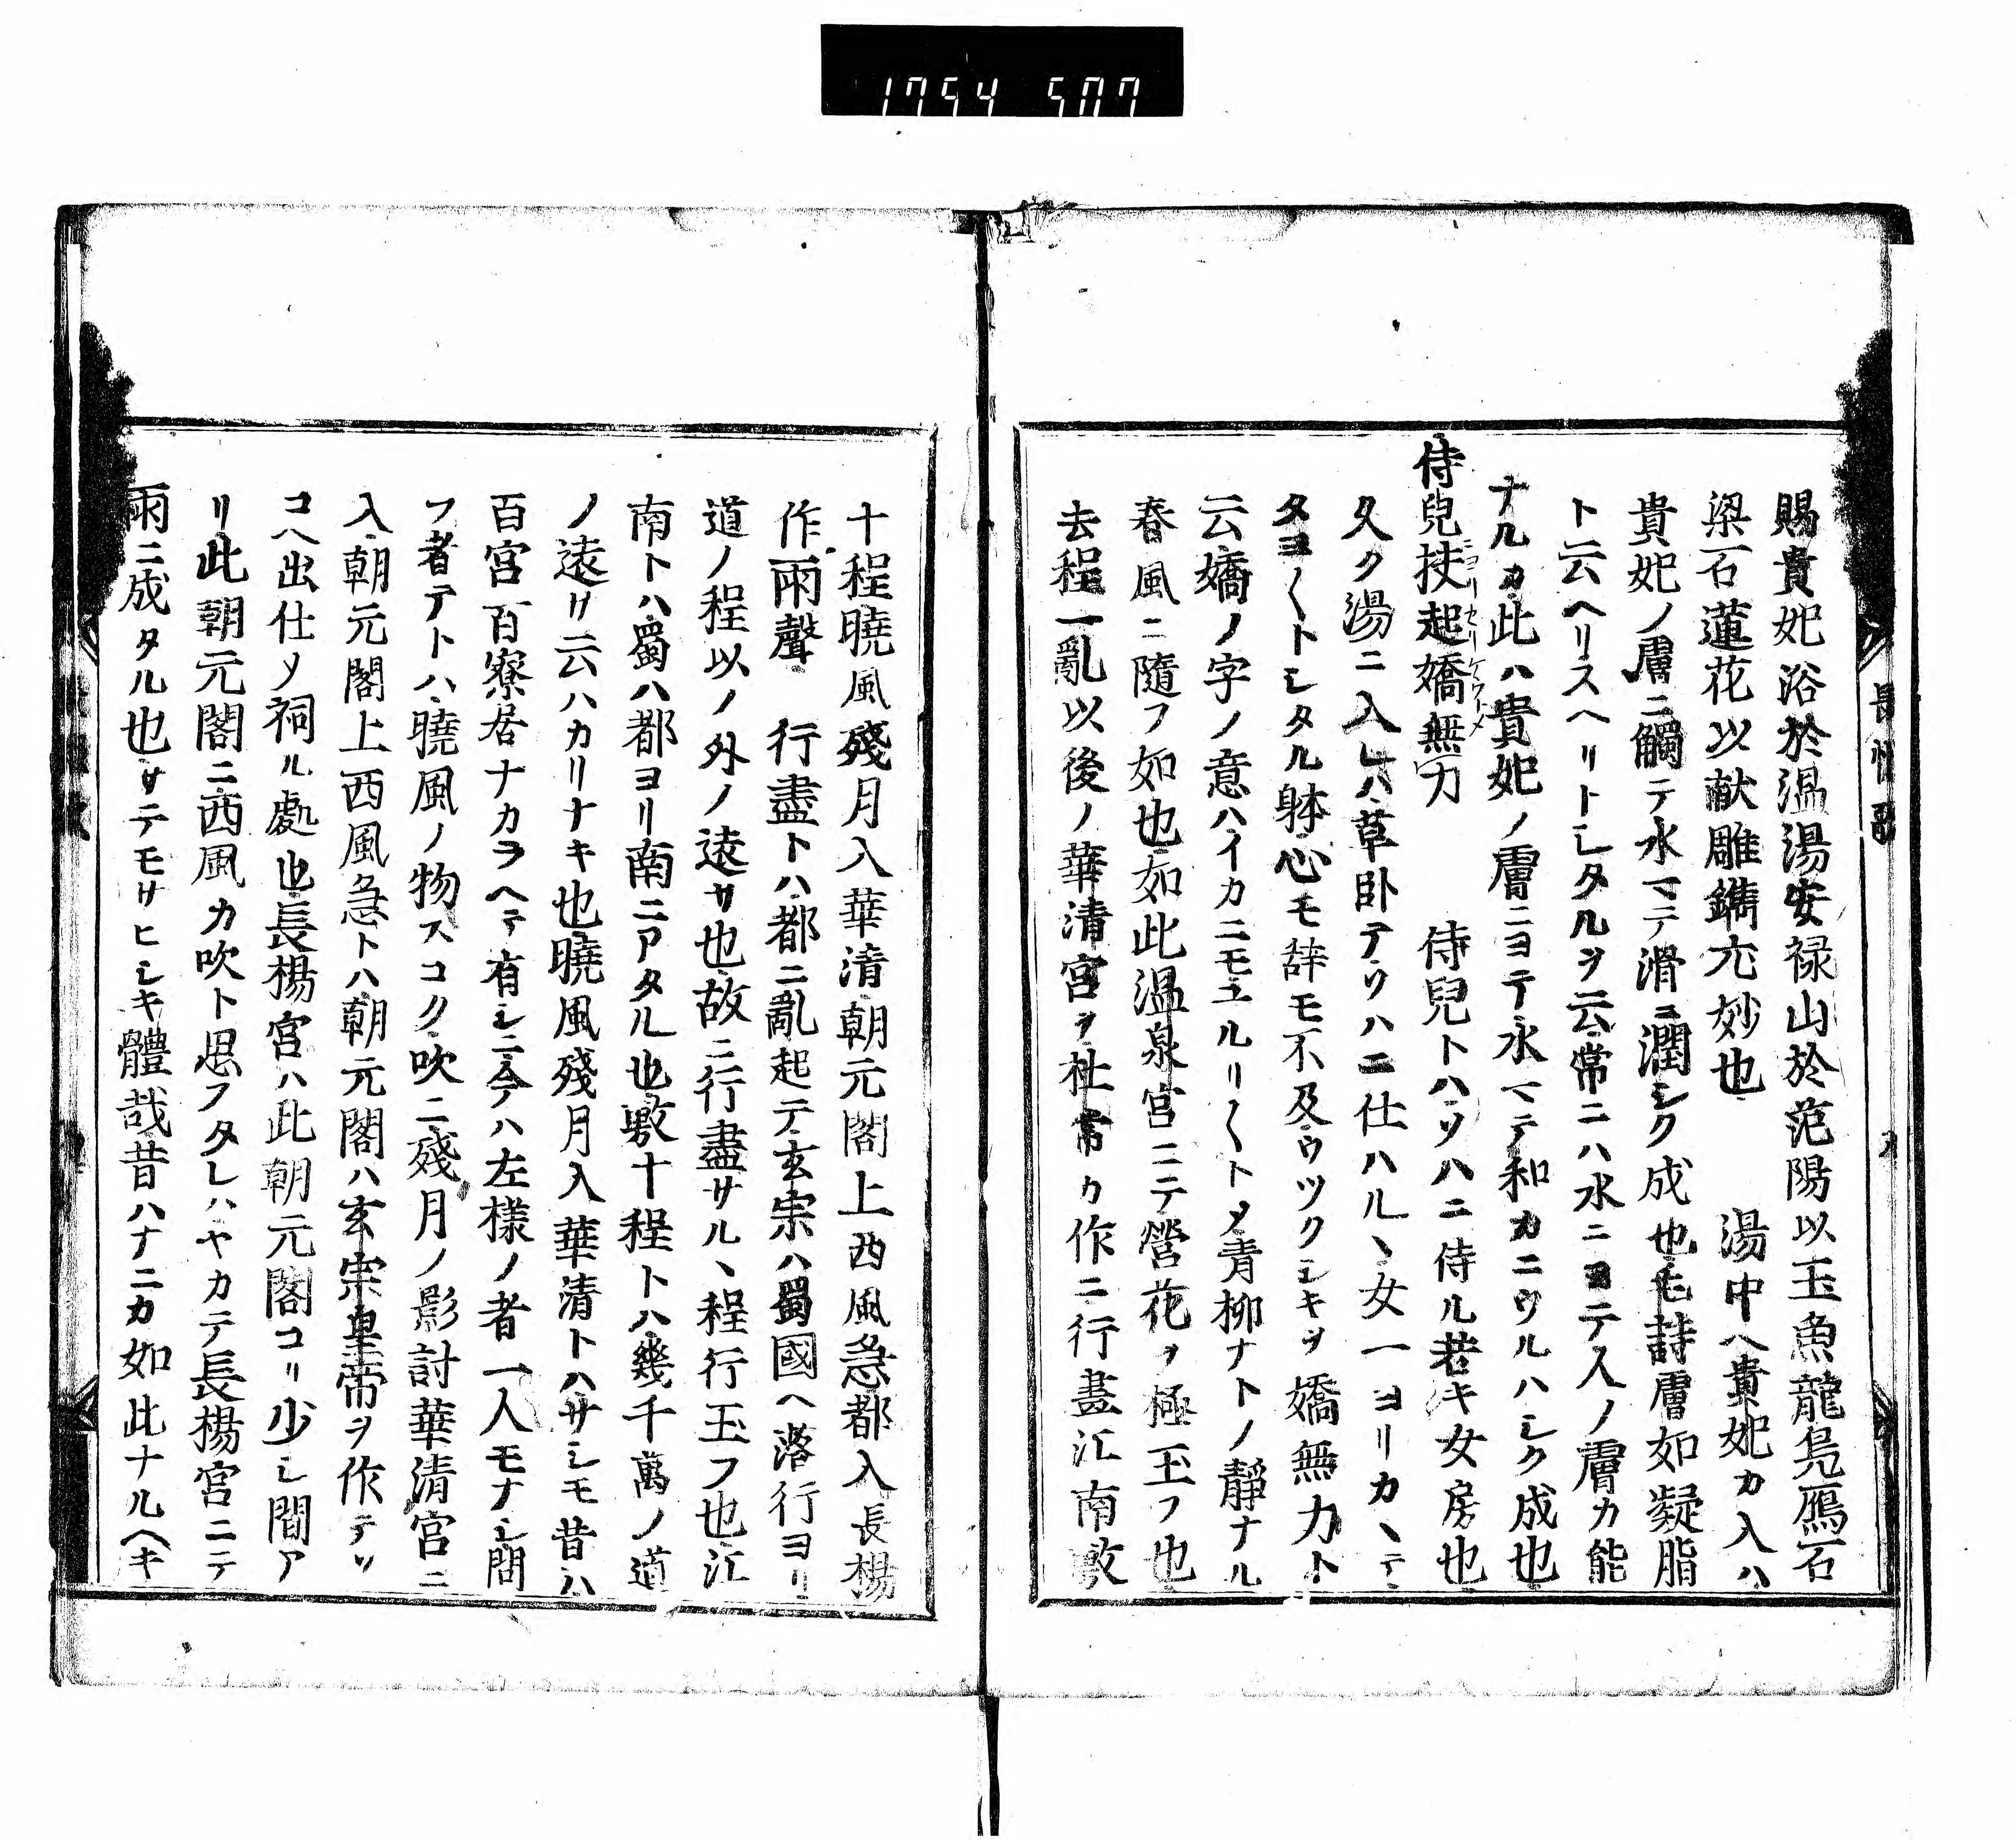 1754 507
長恨歌
賜貴妃浴於温湯安禄山於范陽以玉魚龍鳬鴈石
梁石蓮花以献雕鐫尤妙也 湯中ハ貴妃カ入ハ
貴妃ノ膚ニ觸テ水マテ滑ニ潤シク成也毛詩膚如凝脂
ト云ヘリスヘリトシタルヲ云常ニハ水ニヨテ人ノ膚カ能
ナルカ此ハ貴妃ノ膚ニヨテ水マテ和カニウルハシク成也
侍兒扶起嬌無力 侍兒トハソハニ侍ル若キ女房也
久ク湯ニ入レハ草卧テソハニ仕ハルヽ女ーヨリカヽテ
タヨ〱トシタル躰心モ辞モ不及ウツクシキヲ嬌無力ト
云嬌ノ字ノ意ハイカニモユルリ〱トメ青柳ナトノ靜ナル
春風ニ隨フ如也如此温泉宮ニテ營花ヲ極玉フ也
去程一亂以後ノ華清宮ヲ杜常カ作ニ行盡江南数
十程曉風殘月入華清朝元閣上西風急都入長楊
作雨聲 行盡トハ都ニ亂起テ玄宗ハ蜀國ヘ落行ヨリ
道ノ程以ノ外ノ遠サ也故ニ行盡サルヽ程行玉フ也江
南トハ蜀ハ都ヨリ南ニアタル也数十程トハ幾千萬ノ道
ノ遠サ云ハカリナキ也曉風殘月入華清トハサシモ昔ハ
百宮百寮居ナカラヘテ有シニ今ハ左樣ノ者一人モナシ問
フ者テトハ曉風ノ物スコク吹ニ殘月ノ影討華清宮ニ
入朝元閣上西風急トハ朝元閣ハ玄宗皇帝ヲ作テソ
コヘ出仕メ祠ル處也長楊宮ハ此朝元閣コリ少シ間ア
リ此朝元閣ニ西風カ吹ト思フタレハヤカテ長楊宮ニテ
雨ニ成タル也サテモサヒシキ體哉昔ハナニカ如此ナルヘキ